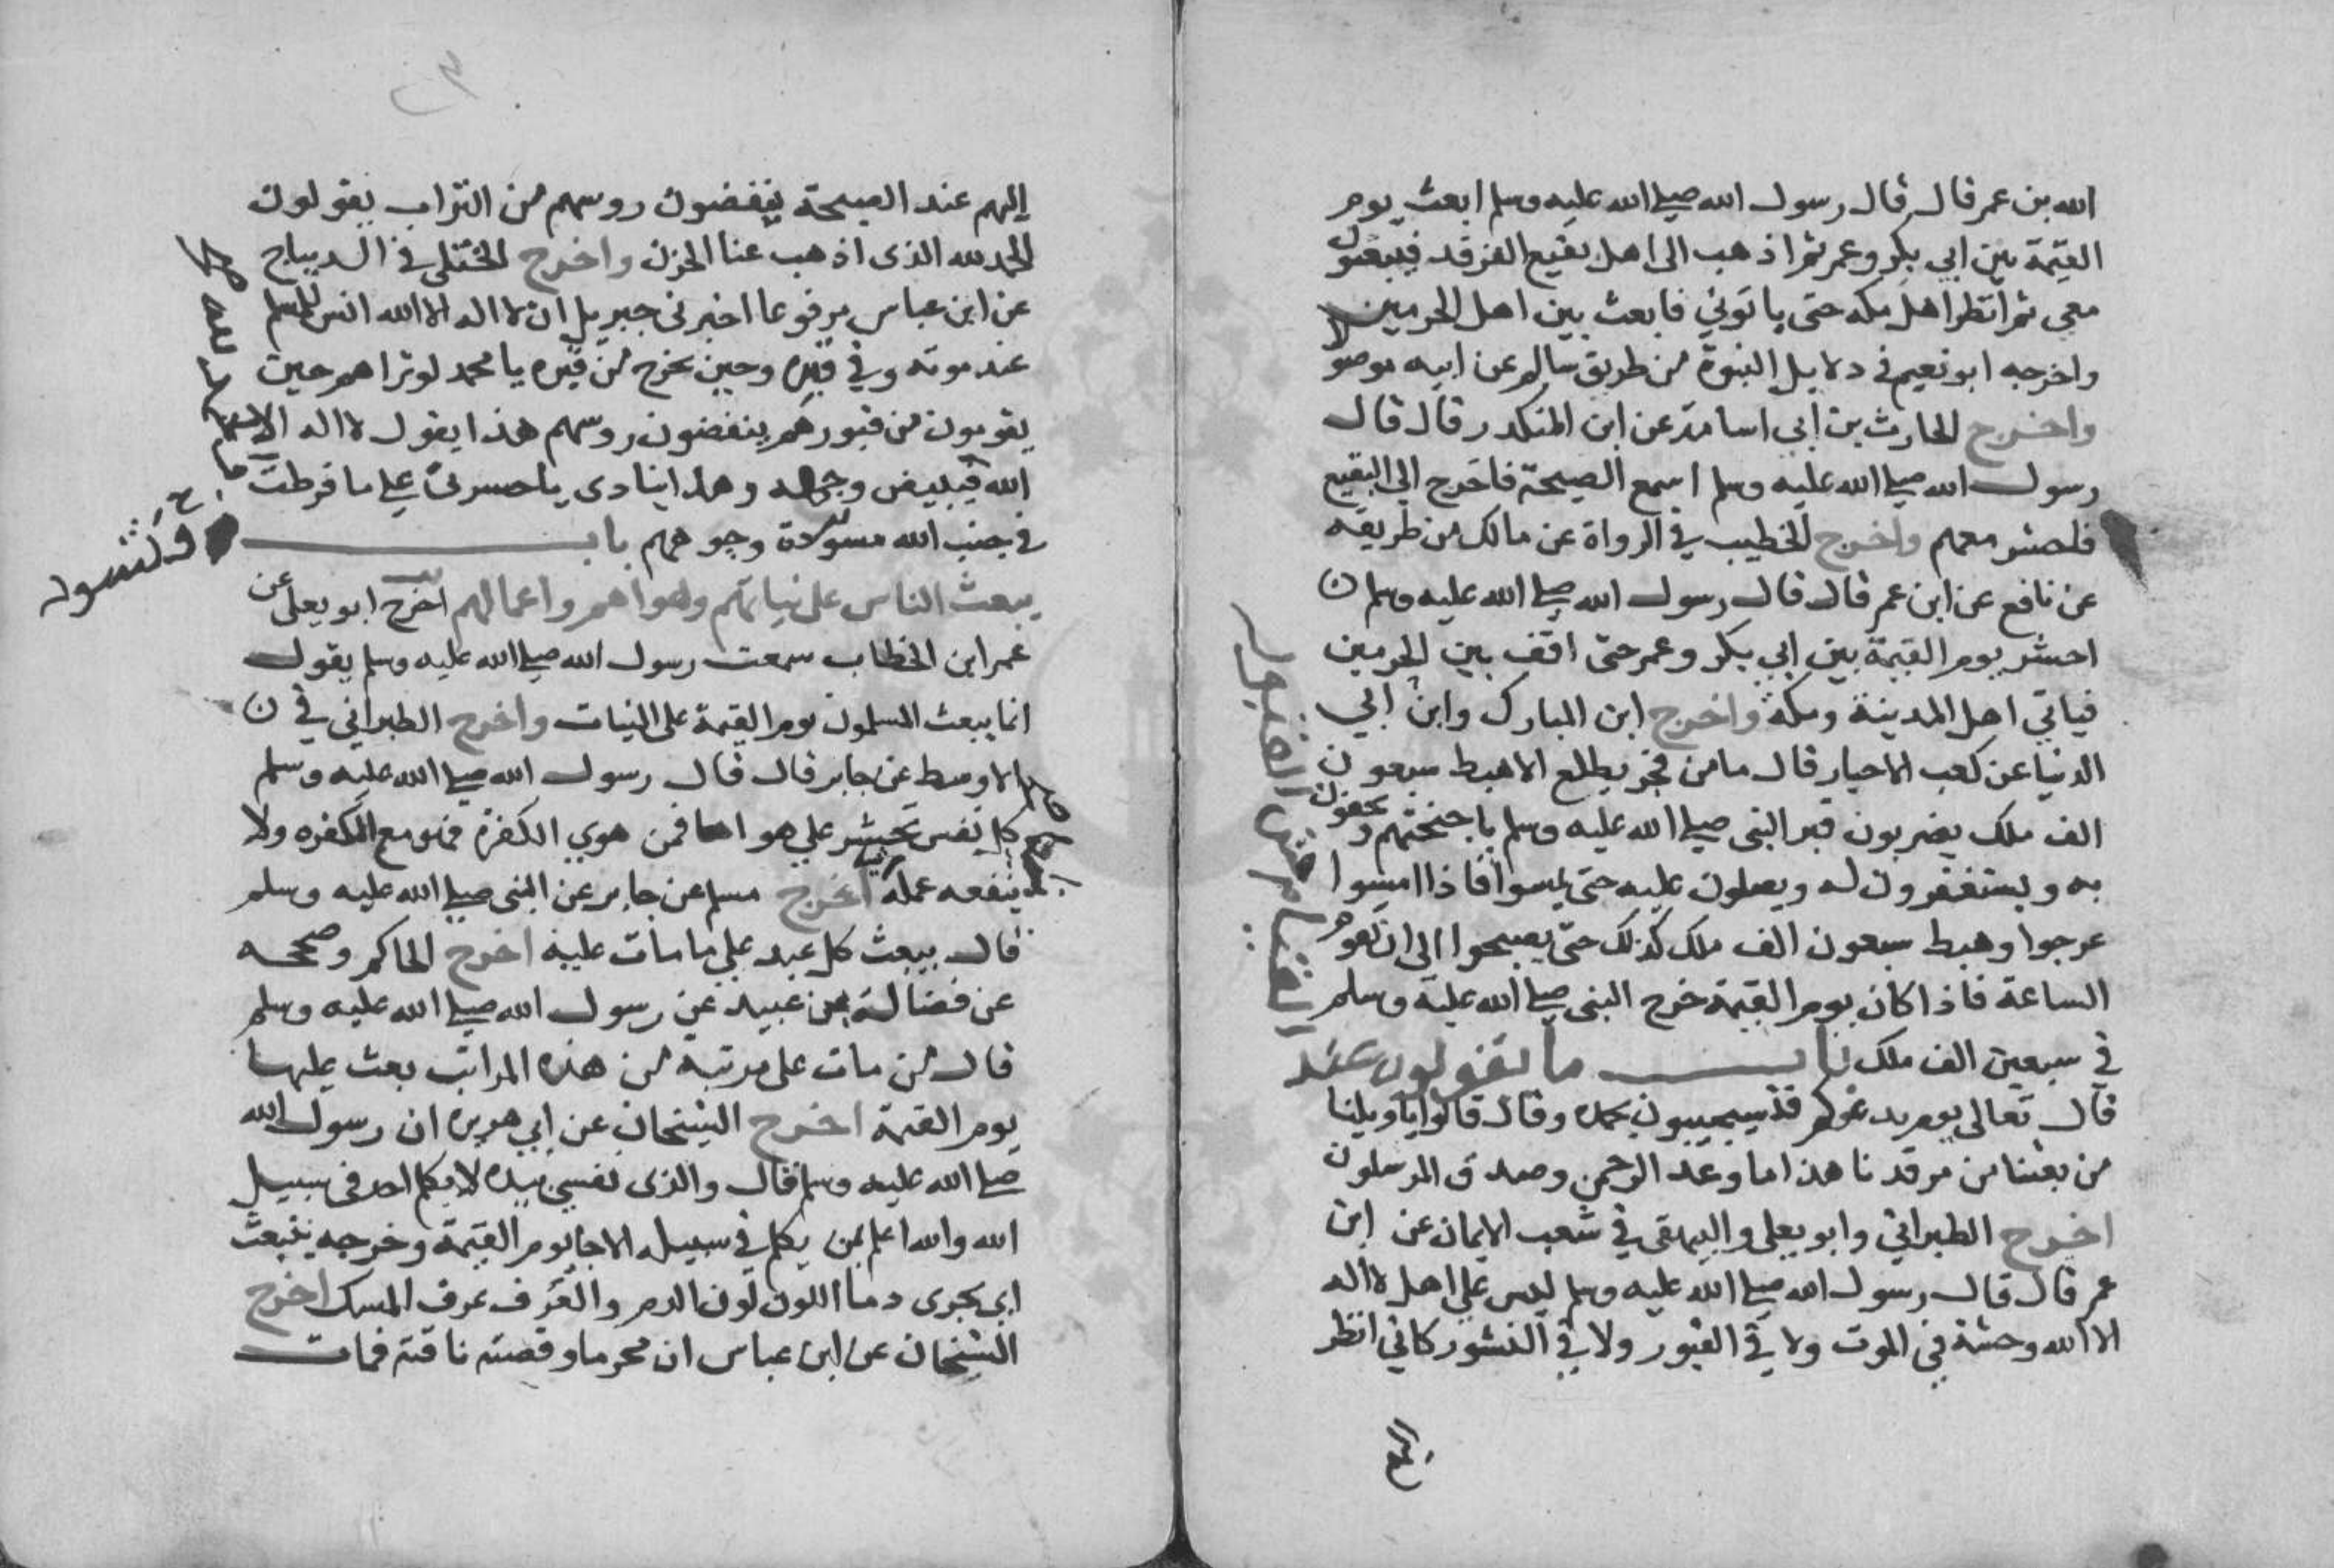 الله بن عمر قال قال رسول الله صلى الله عليه وسلم ابعث يوم
القيمة بين ابي بكر وعمر ثم اذهب الى اهل بقيع الغرقد فيبعثون
معي ثم انتظر اهل مكه حتى ياتوني فابعث بين اهل الحرمين
واخرجه ابو نعيم في دلايل النبوة من طريق سالم عن ابيه موصولا
واخرج الحارث بن ابي اسامة عن ابن المنكدر قال قال
رسول الله صلى الله عليه وسلم اسمع الصيحة فاخرج الي البقيع
فاحشر معهم واخرج الخطيب في الرواة عن مالك من طريقه
عن نافع عن ابن عمر قال قال رسول الله صلى الله عليه وسلم
احشر يوم القيمة بين ابي بكر وعمر حتى اقف بين الحرمين
فياتي اهل المدينة ومكة واخرج ابن المبارك وابن ابي
الدنيا عن كعب الاحبار قال ما من فجر يطلع الا هبط سبعون
الف ملك يضربون قبر النبى صلى الله عليه وسلم باجنحتهم ويحفون
به ويستغفرون له ويصلون عليه حتى يمسوا فاذا امسوا
عرجوا وهبط سبعون الف ملك كذلك حتى يصبحوا الى ان تقوم
الساعة فاذا كان يوم القيمة خرج النبى صلى الله عليه وسلم
في سبعين الف ملك باب ما يقولون عند
القيام من القبور
قال تعالى يوم يدعوكم فتستجيبون بحمده وقال قالوا يا ويلنا
من بعثنا من مرقدنا هذا ما وعد الرحمن وصدق المرسلون
اخرج الطبراني وابو يعلى والبيهقي في شعب الايمان عن ابن
عمر قال قال رسول الله صلى الله عليه وسلم ليس على اهل لا اله
الا الله وحشة في الموت ولا في القبور ولا في النشور كاني انظر
اليهم عند الصيحة ينفضون روسهم من التراب يقولون
الحمد لله الذى اذهب عنا الحزن واخرج الختلى في الديباج
عن ابن عباس مرفوعا اخبرنى جبريل ان لا اله الا الله انس للمسلم
عند موته وفي قبره وحين يخرج من قبره يا محمد لو تراهم حين
يقومون من قبورهم ينفضون روسهم هذا يقول لا اله الا
الله فيبيض وجهه وهذا ينادى يا حسرتى على ما فرطت
في جنب الله مسودة وجوههم باب
يبعث الناس على نياتهم وهواهم واعمالهم اخرج ابو يعلى عن
عمر ابن الخطاب سمعت رسول الله صلى الله عليه وسلم يقول
انما يبعث المسلمون يوم القيمة على النيات واخرج الطبراني في
الاوسط عن جابر قال قال رسول الله صلى الله عليه وسلم
كل نفس تحشر على هواها فمن هوي الكفرة فهو مع الكفره ولا
ينفعه عمله اخرج مسلم عن جابر عن النبى صلى الله عليه وسلم
قال يبعث كل عبد على ما مات عليه اخرج الحاكم وصححه
عن فضالة بن عبيد عن رسول الله صلى الله عليه وسلم
قال من مات على مرتبه من هذه المراتب بعث عليها
يوم القيمة اخرج الشيخان عن ابي هريره ان رسول الله
صلى الله عليه وسلم قال والذى نفسي بيده لا يكلم احد في سبيل
الله والله اعلم بمن يكلم في سبيله الا جا يوم القيمة وجرحه ينبعث
اي يجرى دما اللون لون الدم والعرف عرف المسك اخرج
الشيخان عن ابن عباس ان محرما وقصته ناقته فمات